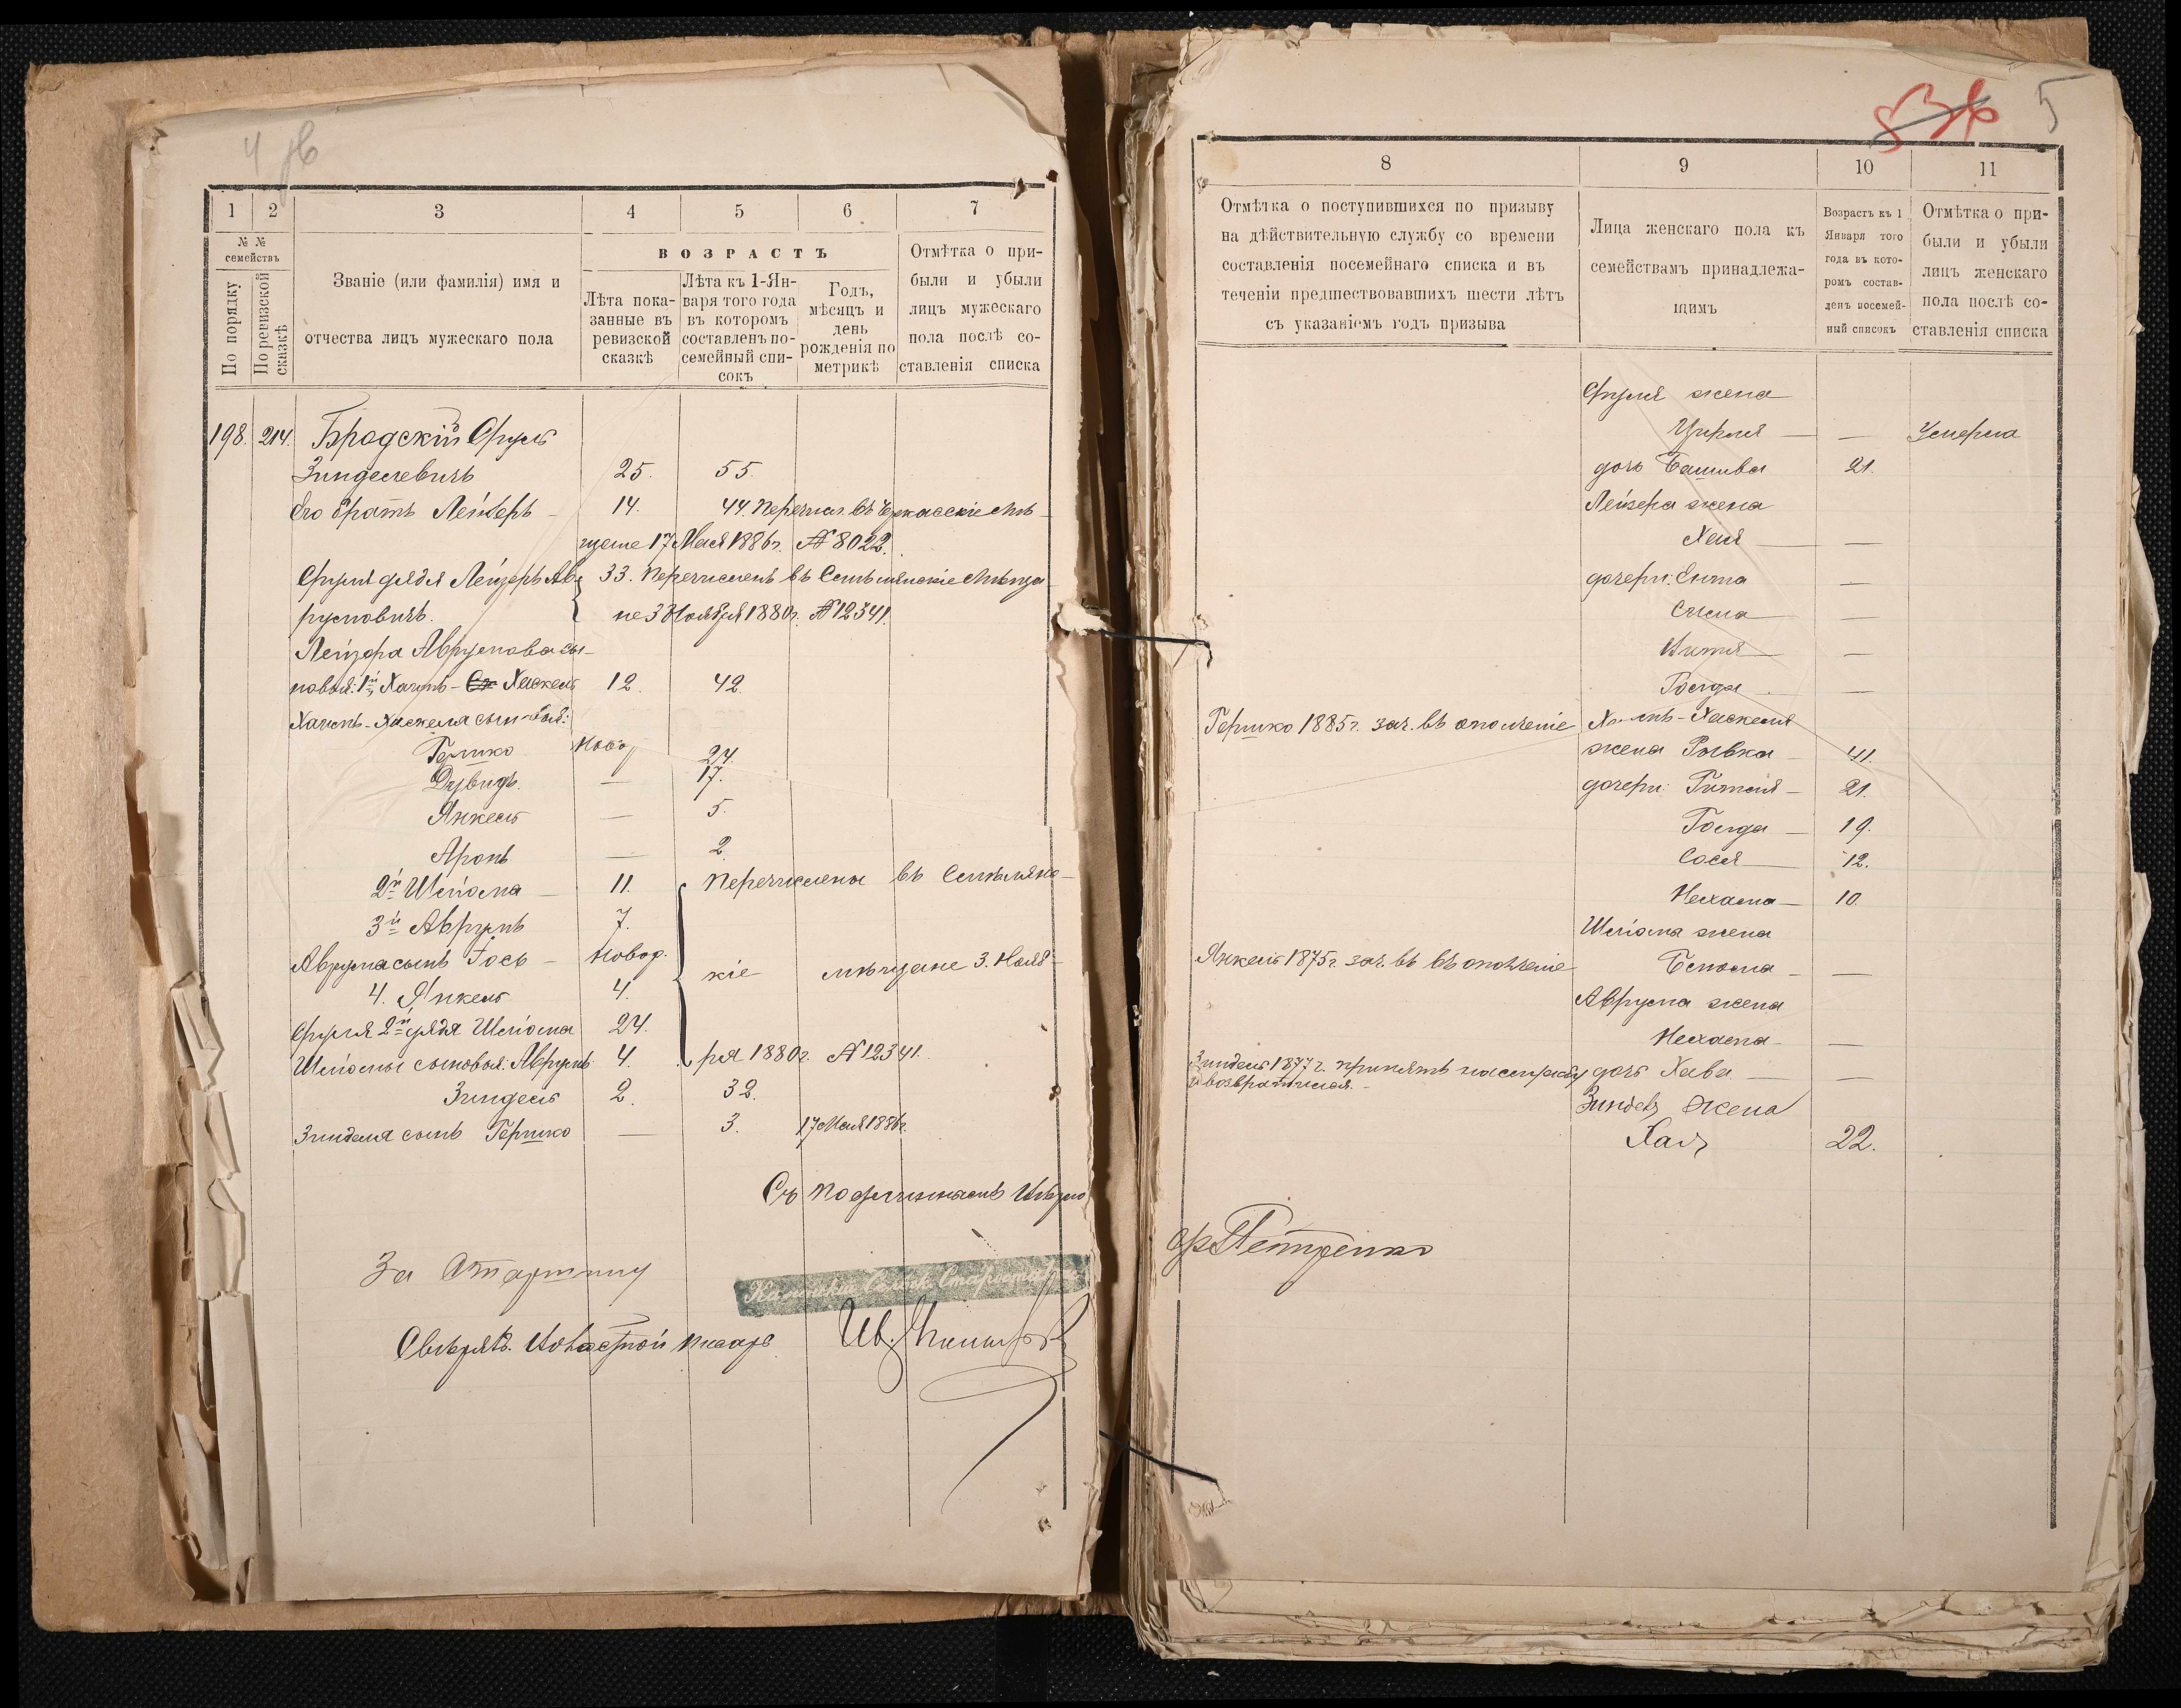 4 об
1 2 3 4 5 6 7
№ №
семействъ
По порядку
По ревизской сказкѣ
Званіе (или фамилія) имя и
отчества лицъ мужескаго пола
ВОЗРАСТЪ
Лѣта пока-
занные въ
ревизской
сказкѣ
Лѣта къ 1-Ян-
варя того года
въ которомъ
составленъ по-
семейный спи-
сокъ
Годъ,
мѣсяцъ и
день
рожденія по
метрикѣ
Отмѣтка о при-
были и убыли
лицъ мужескаго
пола послѣ со-
ставленія списка
198. 214. Бродскій Сруль
Зинделевичъ 25. 55.
Его братъ Лейзеръ 14. 44. Перечисл. въ Черкаскіе мѣ-
щане 17 Мая 1886 г. № 8022.
Сруля дядя Лейзеръ Ав- 33. Перечисленъ въ Смѣлянскіе мѣща-
румовичъ. не 3 Ноября 1880 г. № 12341.
Лейзера Аврумова сы-
новья: 1й Хаимъ - Хаскель 12. 42.
Хаимъ-Хаскеля сыновья:
Гершко Новор 24.
Дувидъ. — 17.
Янкель — 5.
Аронъ — 2.
2й Шліома — 11. Перечислены въ Смѣлянс-
3й Аврумъ 7.
Аврума сынъ Іось — Новор. кіе мѣщане 3. Нояб-
4. Янкель 4.
Сруля 2й дядя Шліома 24.
Шліомы сыновья: Аврумъ 4. ря 1880 г. № 12341.
Зиндель 2. 32.
Зинделя сынъ Гершко — 3. 17 Мая 1886 г.
Съ подлиннымъ вѣрно
За Старшину
Свѣрялъ. Волостной писарь
5
8 9 10 11
Отмѣтка о поступившихся по призыву
на дѣйствительную службу со времени
составленія посемейнаго списка и въ
теченіи предшествовавшихъ шести лѣтъ
съ указаніемъ годъ призыва
Лица женскаго пола къ
семействамъ принадлежа-
щимъ
Возрастъ къ 1
Января того
года въ кото-
ромъ состав-
ленъ посемей-
ный списокъ
Отмѣтка о при-
были и убыли
лицъ женскаго
пола послѣ со-
ставленія списка
Сруля жена
Цирля — — Умерла
дочь Башива 21.
Лейзера жена
Хая — —
дочери: Ента —
—
—
Гольда —
Гершко 1885 г. зач. въ ополченіе Хаимъ-Хаскеля
жена Рывка 41.
дочери: Гитля — 21.
Гольда — 19.
Сося — 12.
Нехама — 10.
Шліома жена
Янкель 1875 г. зач. въ въ ополченіе —
Аврума жена
Нехама —
Зиндель 1877 г. принятъ на службу дочь Хава — —
и возвратился.
Зинделя жена
Хая 22.
Петренко